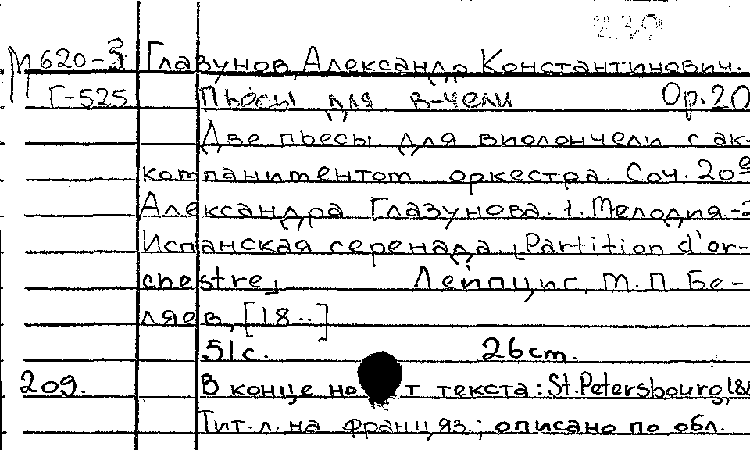 239
М 620-3 Глазунов, Александр Константинович.
Г-525 Пьесы для в-чели Ор.20
Две пьесы для виолончели с ак-
компаниментом оркестра. Соч. 20е
Александра Глазунова. 1. Мелодия-2
Испанская серенада. [Partition d'or-
chestre] Лейпциг, М.П. Бе-
ляев, [18..]
51с. 26cm.
209. В конце текста: St. Petersbourg, 188
Тит. л. на француз.; описано по обл.